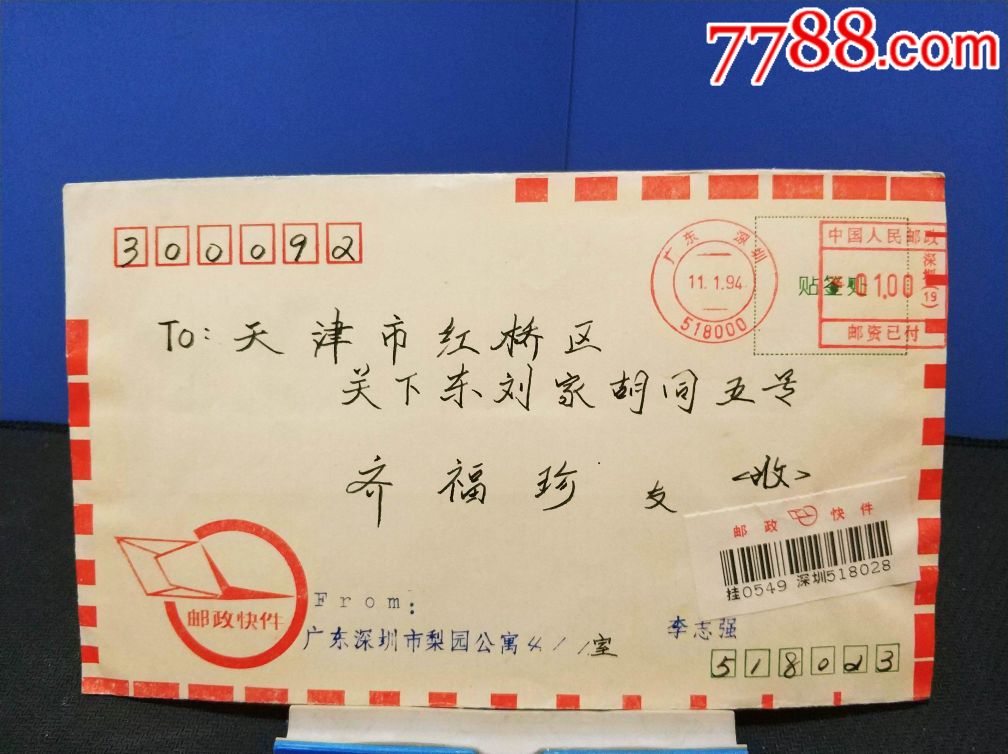 7788.com
300092
广东 深圳
11.1.94
518000
贴签处
中国人民邮政
01.00
深圳
(19)
邮资已付
To: 天津市红桥区
关下东刘家胡同五号
齐福珍 友 <收>
邮政 快件
挂0549 深圳518028
邮政快件
From:
广东深圳市梨园公寓411室
李志强
518023